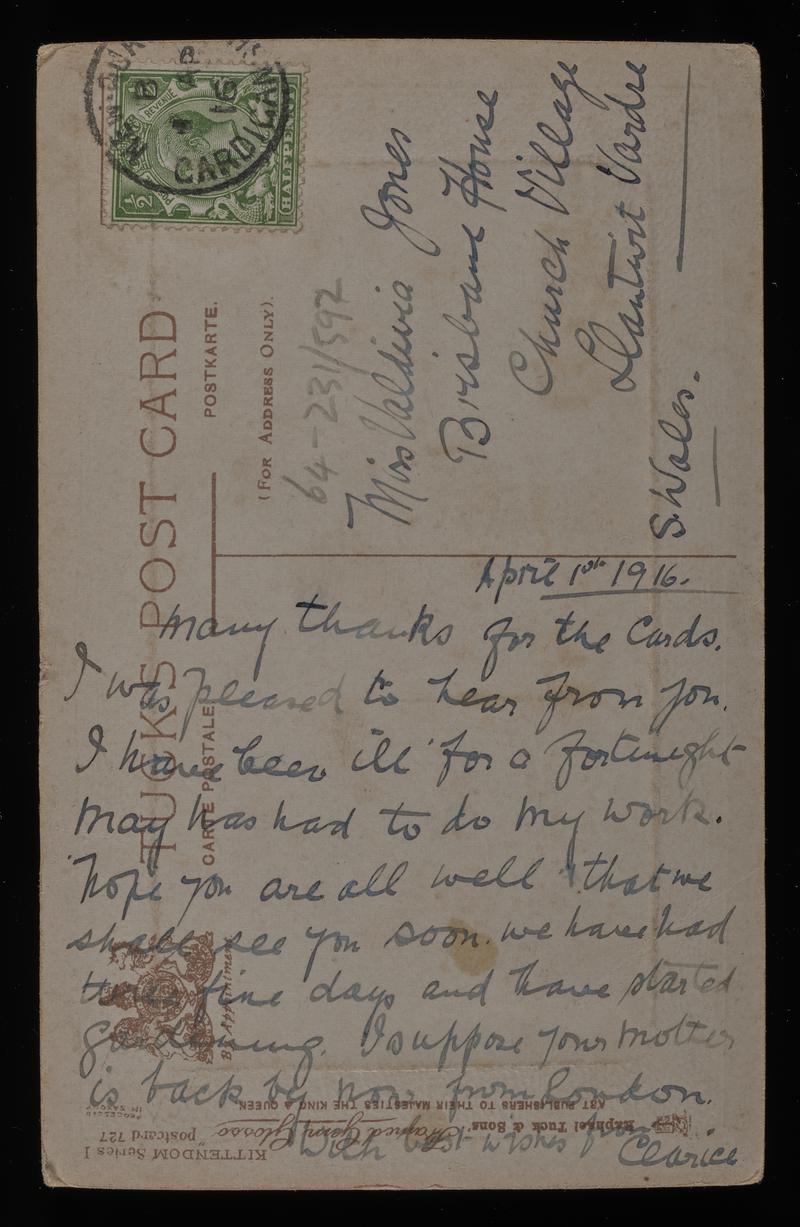 NEWQUAY
CARDIGAN
AP
16
REVENUE
½
HALFPE
TUCK'S POST CARD
CARTE POSTALE
POSTKARTE.
(FOR ADDRESS ONLY).
64-231/592
Miss Valdivia Jones
Brisbane House
Church Village
Llantwit Vardre
S. Wales.
April 1st 1916.
Many thanks for the Cards.
I was pleased to hear from you.
I have been ill for a fortnight
May has had to do my work.
Hope you are all well & that we
shall see you soon. we have had
three fine days and have started
gardening. I suppose your mother
is back by now from London.
With best wishes from
Clarice
BY APPOINTMENT
RAPHAEL TUCK & SONS'
ART PUBLISHERS TO THEIR MAJESTIES THE KING & QUEEN
KITTENDOM Series I
"postcard 727
PROCESSED
IN SAXONY